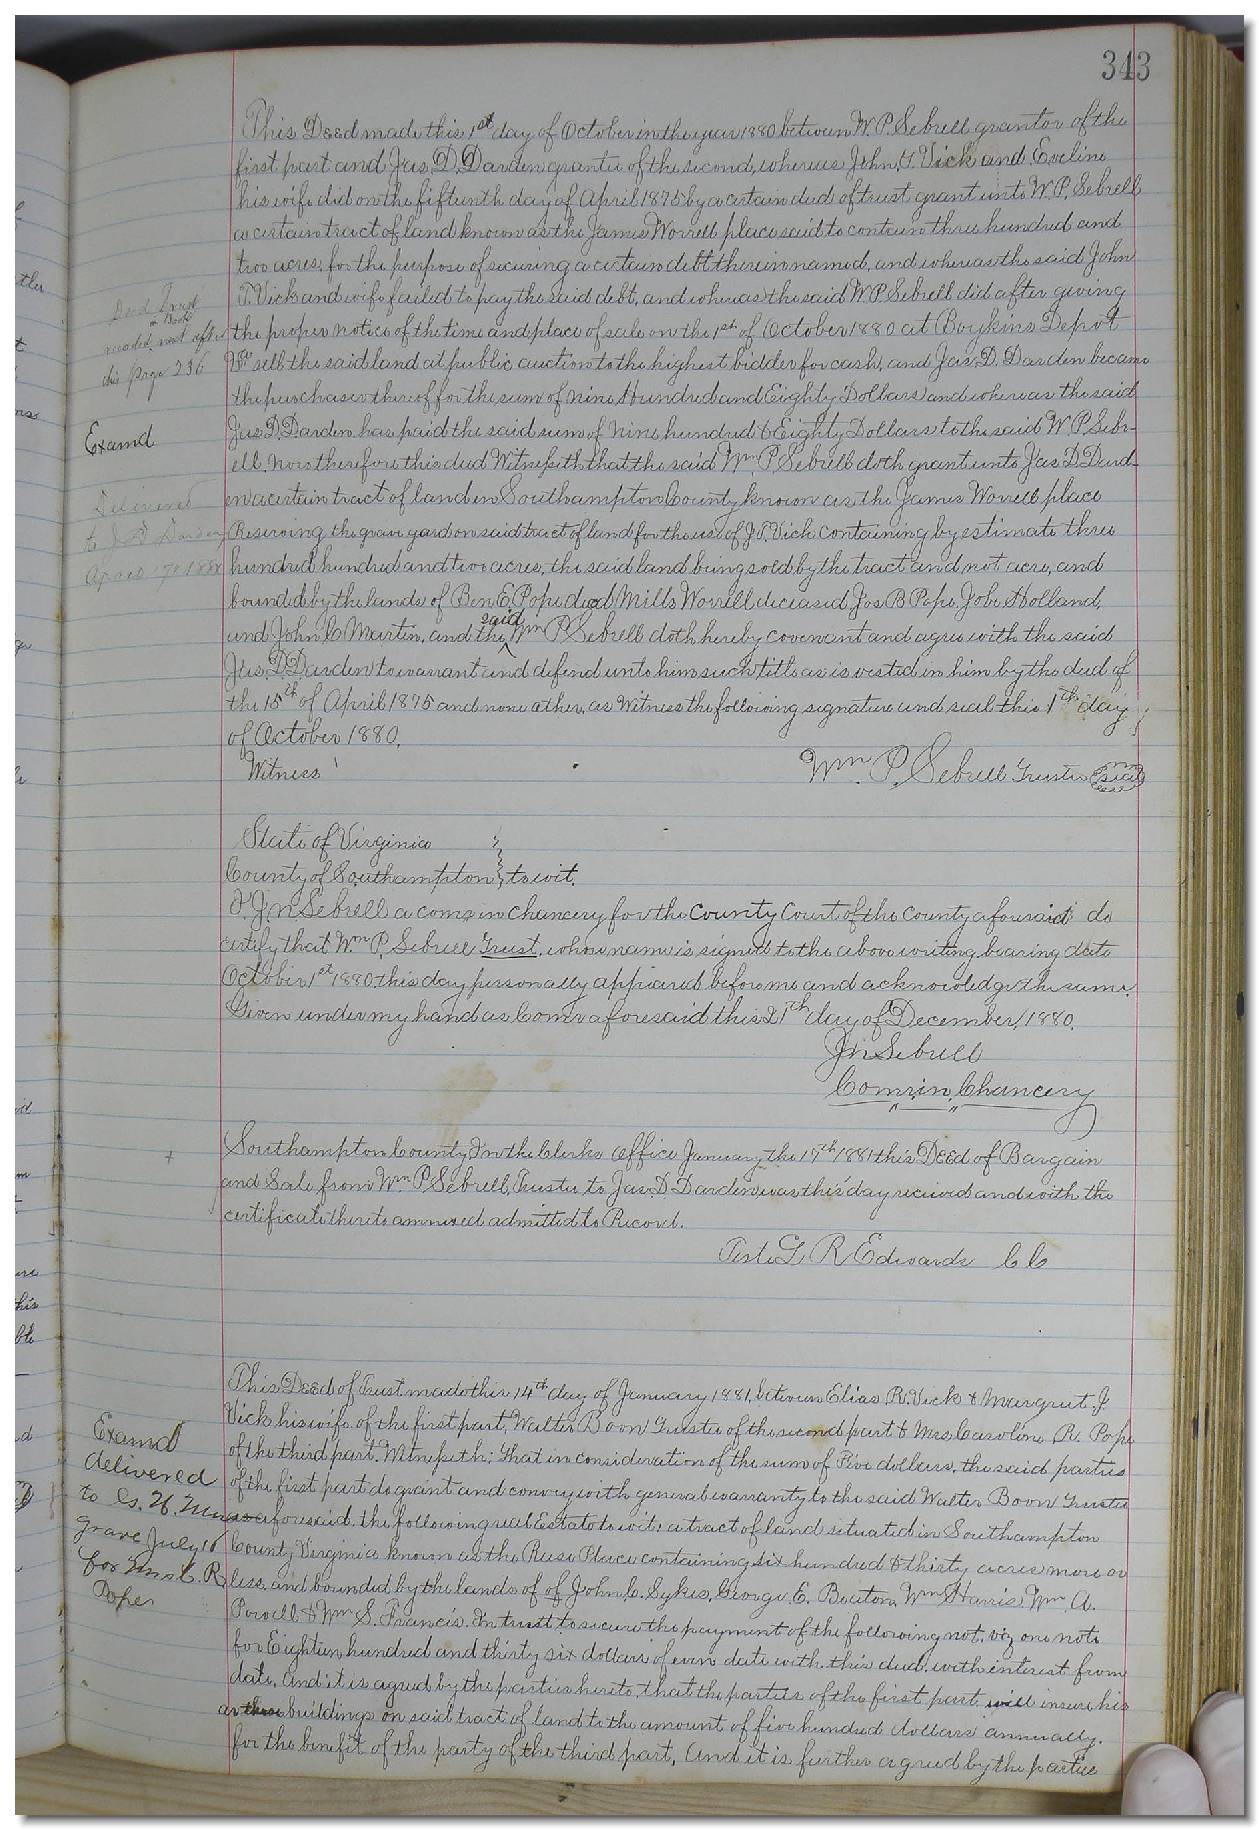 343
This Deed made this 1st day of October in the year 1880 between W. P. Sebrell grantor of the
first part and Jas. D. Darden grantee of the second, whereas John. T. Vick and Eveline
his wife did on the fifteenth day of April 1875 by a certain deed of trust grant unto W. P. Sebrell
a certain tract of land known as the James Worrell place said to contain three hundred and
two acres, for the purpose of securing a certain debt therein named, and whereas the said John
T. Vick and wife failed to pay the said debt, and whereas the said W P Sebrell did after giving
the proper notice of the time and place of sale on the 1st of October 1880 at Boykins Depot
Va sell the said land at public auction to the highest bidder for cash, and Jas. D. Darden became
the purchaser thereof for the sum of nine Hundred and Eighty Dollars and whereas the said
Jas D. Darden has paid the said sum of Nine hundred & Eighty Dollars to the said W P Sebr-
ell. Now therefore this deed Witnesseth that the said Wm P Sebrell doth grant unto Jas D Dard-
en a certain tract of land in Southampton County known as the James Worrell place
Reserving the grave yard on said tract of land for the use of J. T. Vick containing by estimate three
hundred hundred and two acres, the said land being sold by the tract and not acre, and
bounded by the lands of Ben E. Pope decd Mills Worrell deceased Jos B Pope Jobe Holland,
and John C Martin, and the said Wm P Sebrell doth hereby covenant and agree with the said
Jas. D. Darden to warrant and defend unto him such title as is vested in him by the deed of
the 15th of April 1875 and none other, as Witness the following signature and seal this 1th day
of October 1880.
Witness
Wm. P. Sebrell Trustee seal
Deed Trust
in Book
recorded next after
this page 236
Examd
Delivered
to J D Darden
State of Virginia
County of Southampton to wit.
I J N Sebrell a comr in Chancery for the County Court of the County aforesaid do
certify that Wm P. Sebrell Trust. whose name is signed to the above writing bearing date
October 1st 1880 this day personally appeared before me and acknowledge the same.
Given under my hand as Comr aforesaid this 21th day of December, 1880.
J N Sebrell
Comr in Chancery
Southampton County In the Clerks Office January the 17th 1881 this Deed of Bargain
and Sale from Wm P Sebrell, Trustee to Jas. D. Darden was this day received and with the
certificate thereto annexed admitted to Record.
Teste L R Edwards C C
This Deed of Trust made this 14th day of January 1881, between Elias R. Vick & Margret. J
Vick his wife of the first part, Walter Boon Trustee of the second part & Mrs Caroline R. Pope
of the third part, Witnesseth: that in consideration of the sum of Five dollars, the said parties
of the first part do grant and convey with general warranty to the said Walter Boon Trustee
aforesaid. the following real Estate to wit: a tract of land situated in Southampton
County Virginia known as the Reese Place containing six hundred & thirty acres more or
less, and bounded by the lands of of John. C. Sykes, George. E. Beaton, Wm Harris, Wm. A.
Powell & Wm S. Francis. In trust to secure the payment of the following not. viz one note
for Eighteen hundred and thirty six dollars of even date with this deed, with interest from
date, And it is agreed by the parties hereto, that the parties of the first part will insure his
buildings on said tract of land to the amount of five hundred dollars annually.
for the benefit of the party of the third part, And it is further agreed by the parties
Examd
delivered
to
grave July 16
for Mrs C. R.
Pope